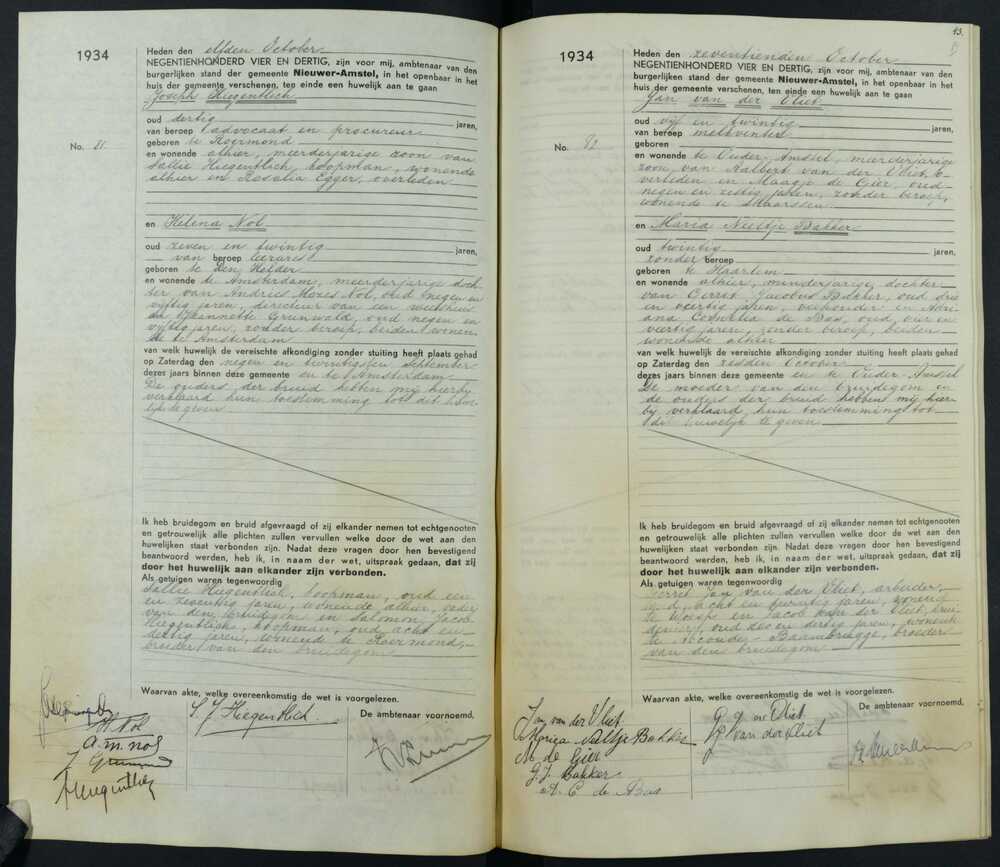 1934
No. 81.
Heden den elfden October
NEGENTIENHONDERD VIER EN DERTIG, zijn voor mij, ambtenaar van den
burgerlijken stand der gemeente Nieuwer-Amstel, in het openbaar in het
huis der gemeente verschenen, ten einde een huwelijk aan te gaan
Joseph Hiegentlich
oud dertig jaren,
van beroep advocaat en procureur
geboren te Roermond
en wonende alhier, meerderjarige zoon van
Sallie Hiegentlich, koopman, wonende
alhier en Rosalia Egger, overleden
en Helena Nol
oud zeven en twintig jaren,
van beroep lerares
geboren te Den Helder
en wonende te Amsterdam, meerderjarige doch-
ter van Andries Mozes Nol, oud negen en
vijftig jaren, directeur van een
en Jeannette Grunwald, oud negen en
vijftig jaren, zonder beroep, beiden wonen-
de te Amsterdam
van welk huwelijk de vereischte afkondiging zonder stuiting heeft plaats gehad
op Zaterdag den negen en twintigsten September
dezes jaars binnen deze gemeente en te Amsterdam
De ouders der bruid hebben mij hierbij
verklaard hun toestemming tot dit huwe-
lijk te geven
Ik heb bruidegom en bruid afgevraagd of zij elkander nemen tot echtgenooten
en getrouwelijk alle plichten zullen vervullen welke door de wet aan den
huwelijken staat verbonden zijn. Nadat deze vragen door hen bevestigend
beantwoord werden, heb ik, in naam der wet, uitspraak gedaan, dat zij
door het huwelijk aan elkander zijn verbonden.
Als getuigen waren tegenwoordig
Sallie Hiegentlich, koopman, oud een
en zeventig jaren, wonende alhier, vader
van den bruidegom en Salomon Jacob
Hiegentlich, koopman, oud acht en
dertig jaren, wonende te Roermond,
broeder van den bruidegom
Waarvan akte, welke overeenkomstig de wet is voorgelezen.
De ambtenaar voornoemd,
S. J. Hiegentlich.
H Nol
A. M. Nol
J Grunwald
Hiegentlich
13.
1934
No. 82
Heden den zeventienden October
NEGENTIENHONDERD VIER EN DERTIG, zijn voor mij, ambtenaar van den
burgerlijken stand der gemeente Nieuwer-Amstel, in het openbaar in het
huis der gemeente verschenen, ten einde een huwelijk aan te gaan
Jan van der Vliet
oud vijf en twintig jaren,
van beroep melkventer
geboren
en wonende te Ouder-Amstel, meerderjarige
zoon van Aalbert van der Vliet, o-
verleden en Maagje de Gier, oud
negen en zestig jaren, zonder beroep,
wonende te Maarssen
en Maria Neeltje Bakker
oud twintig jaren,
zonder beroep
geboren te Haarlem
en wonende alhier, minderjarige dochter
van Gerret Jacobus Bakker, oud drie
en veertig jaren, en Adri-
ana Cornelia de Bas, oud vier en
veertig jaren, zonder beroep, beiden
wonende alhier
van welk huwelijk de vereischte afkondiging zonder stuiting heeft plaats gehad
op Zaterdag den zesden October
dezes jaars binnen deze gemeente en te Ouder-Amstel
De moeder van den bruidegom en
de ouders der bruid hebben mij hier-
bij verklaard, hun toestemming tot
dit huwelijk te geven
Ik heb bruidegom en bruid afgevraagd of zij elkander nemen tot echtgenooten
en getrouwelijk alle plichten zullen vervullen welke door de wet aan den
huwelijken staat verbonden zijn. Nadat deze vragen door hen bevestigend
beantwoord werden, heb ik, in naam der wet, uitspraak gedaan, dat zij
door het huwelijk aan elkander zijn verbonden.
Als getuigen waren tegenwoordig
Gerret Jan van der Vliet, arbeider,
oud acht en twintig jaren, wonende
te Weesp en Jacob van der Vliet, krui-
denier, oud zes en dertig jaren, wonende
te Abcoude-Baambrugge, broeders
van den bruidegom
Waarvan akte, welke overeenkomstig de wet is voorgelezen.
De ambtenaar voornoemd,
Jan van der Vliet
Marica Neeltje Bakker
M de Gier
G. J. Bakker
A. C. de Bas
G. J. v d Vliet
J van der Vliet